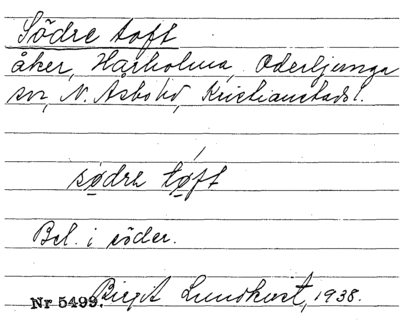 Södre toft
åker, Hårholma, Oderljunga
sn, N. Åsbo hd, Kristianstads l.
sødre tøft
Bel. i söder.
Nr 5499. Birgit Lundkvist, 1938.